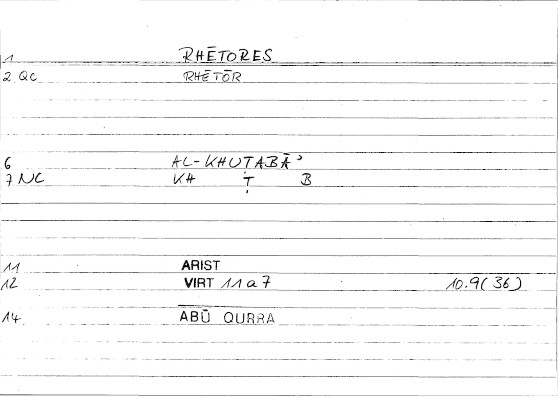 1 RHĒTORES
2 QC RHĒTŌR
6 AL-KHUṬABĀʾ
7 NC KH Ṭ B
11 ARIST
12 VIRT 11a7 10.9(36)
14 ABŪ QURRA